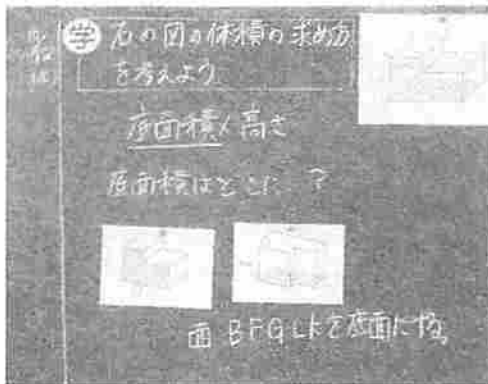 学 右の図の体積の求め方
を考えよう
底面積×高さ
底面積はどこだ?
面BFGLKを底面にする。